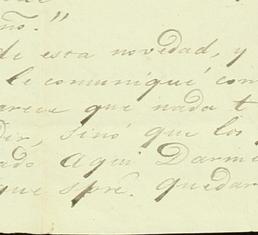 ño."
de esta novedad, y
le comuniqué con
arece que nada t
dir, sinó que los
ado Aqui Darmi
que spré. quedar